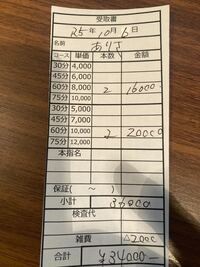 受取書
R5年10月6日
名前 ありさ
コース 単価 本数 金額
30分 4,000
45分 6,000
60分 8,000 2 16000
75分 10,000
30分 5,000
45分 7,000
60分 10,000 2 20000
75分 12,000
本指名
保証( 〜 )
小計 36000
検査代
雑費 △2000
合計 ¥34000-